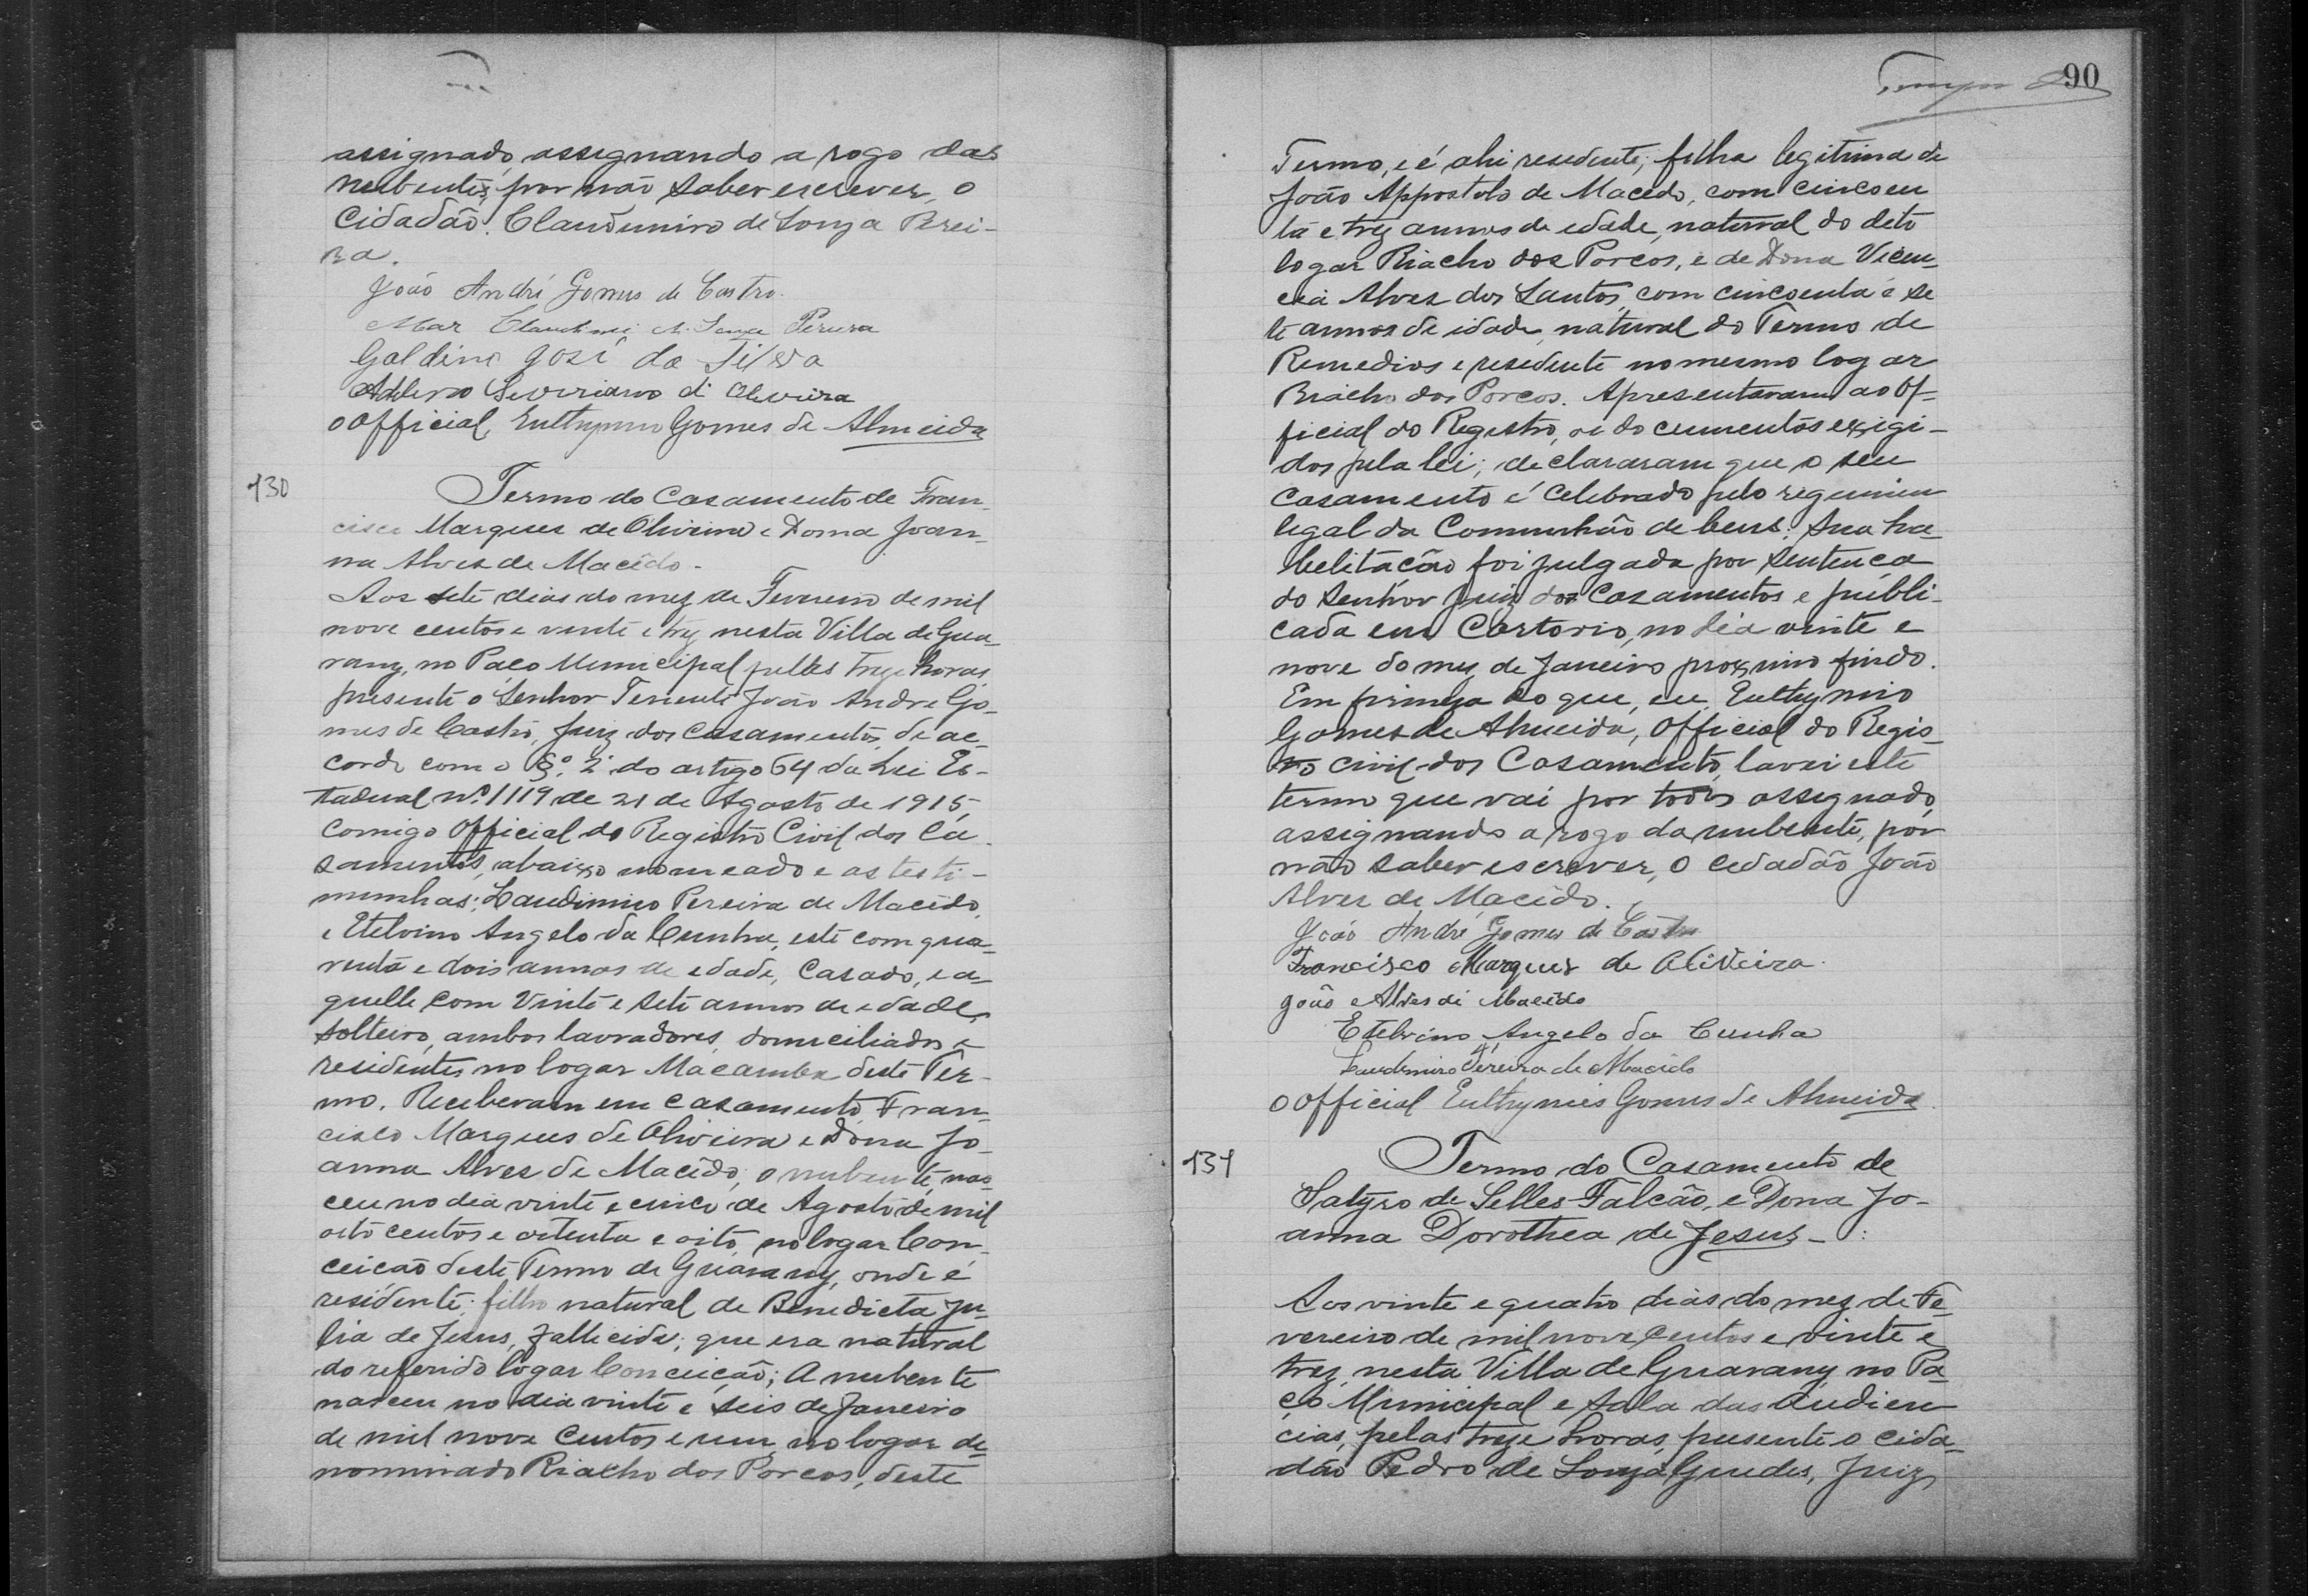 assignado, assignando a rogo das
nubentes, por não saber escrever, o
Cidadão. Claudimiro de Souza Perei-
ra.
João André Gomes de Castro.
Mar Pereira
Galdino José da Silva
Severiano di Oliveira
o official, Euthymio Gomes de Almeida
130
Termo do Casamento de Fran-
cisco Marques de Oliveira e Dona Joan-
na Alves de Macêdo.
Aos sete dias do mez de Fevereiro de mil
nove centos e vinte e trez nesta Villa de Gua-
rany, no Paço Municipal pellas treze horas
presente o Senhor Tenente João Andre Go-
mes de Castro, Juiz dos Casamentos, de ac-
cordo com o §º. 2º do artigo 64 da Lei Es-
tadual nº. 1119 de 21 de Agosto de 1915,
Comigo Official do Registro Civil dos Ca-
samentos, abaixo nomeado e as testi-
munhas: Laudimiro Pereira de Macêdo,
e Etelvino Angelo da Cunha, este com qua-
renta e dois annos de edade, Casado, e a-
quelle com Vinte e sete annos de edade,
solteiro, ambos lavradores, domiciliados e
residentes no logar Macamba deste Ter-
mo. Receberam em casamento Fran-
cisco Marques de Oliveira e Dona Jo-
anna Alves de Macêdo; o nubente, nas-
ceu no dia vinte e cinco de Agosto de mil
oito centos e oitenta e oito, no logar Con-
ceicão deste Termo de Guarany, onde é
residente; filho natural de Benedicta Ju-
lia de Jesus, fallecida; que era natural
do referido logar Conceicão; A nubente
nasceu no dia vinte e seis de Janeiro
de mil nove centos e um, no logar de-
nominado Riacho dos Porcos, deste
90
Termo, e é ahi residente; filha legitima de
João Appostolo de Macêdo, com cincoen
ta e trez annos de edade, natural do dito
logar Riacho dos Porcos, e de Dona Vicen-
cia Alves dos Santos, com cincoenta e se
te annos de idade, natural do Termo de
Remedios e residente no mesmo logar
Riacho dos Porcos. Apresentaram ao Of-
ficial do Registro, os documentos exigi-
dos pela lei; declararam que o seu
casamento é celebrado pelo regimem
legal da Communhão de bens: Sua ha-
belitacão foi julgada por sentença
do Senhor Juiz dos Casamentos e publi-
cada em Cartorio, no dia vinte e
nove do mez de Janeiro proximo findo.
Em firmeza do que, eu, Euthymio
Gomes de Almeida, Official do Regis-
tro Civil dos Casamento, lavrei este
termo que vai por todos assignado,
assignando a rogo da nubente, por
não saber escrever, o cidadão João
Alves de Macêdo.
João André Gomes de Castro
Francisco Marques de Oliveira.
João Alves di Macêdo
Etelvino Angelo da Cunha
Laudimiro Pereira de Macêdo
o official Euthymio Gomes de Almeida
131
Termo do Casamento de
Satyro de Selles Falcão, e Dona Jo-
anna Dorothea de Jesus - :
Aos vinte e quatro dias do mez de Fe-
vereiro de mil nove centos e vinte e
trez, nesta Villa de Guarany, no Pa-
ço Municipal e sala das Audien
cias, pelas treze horas, presente o Cida-
dão Pedro de Souza Guedes, Juiz